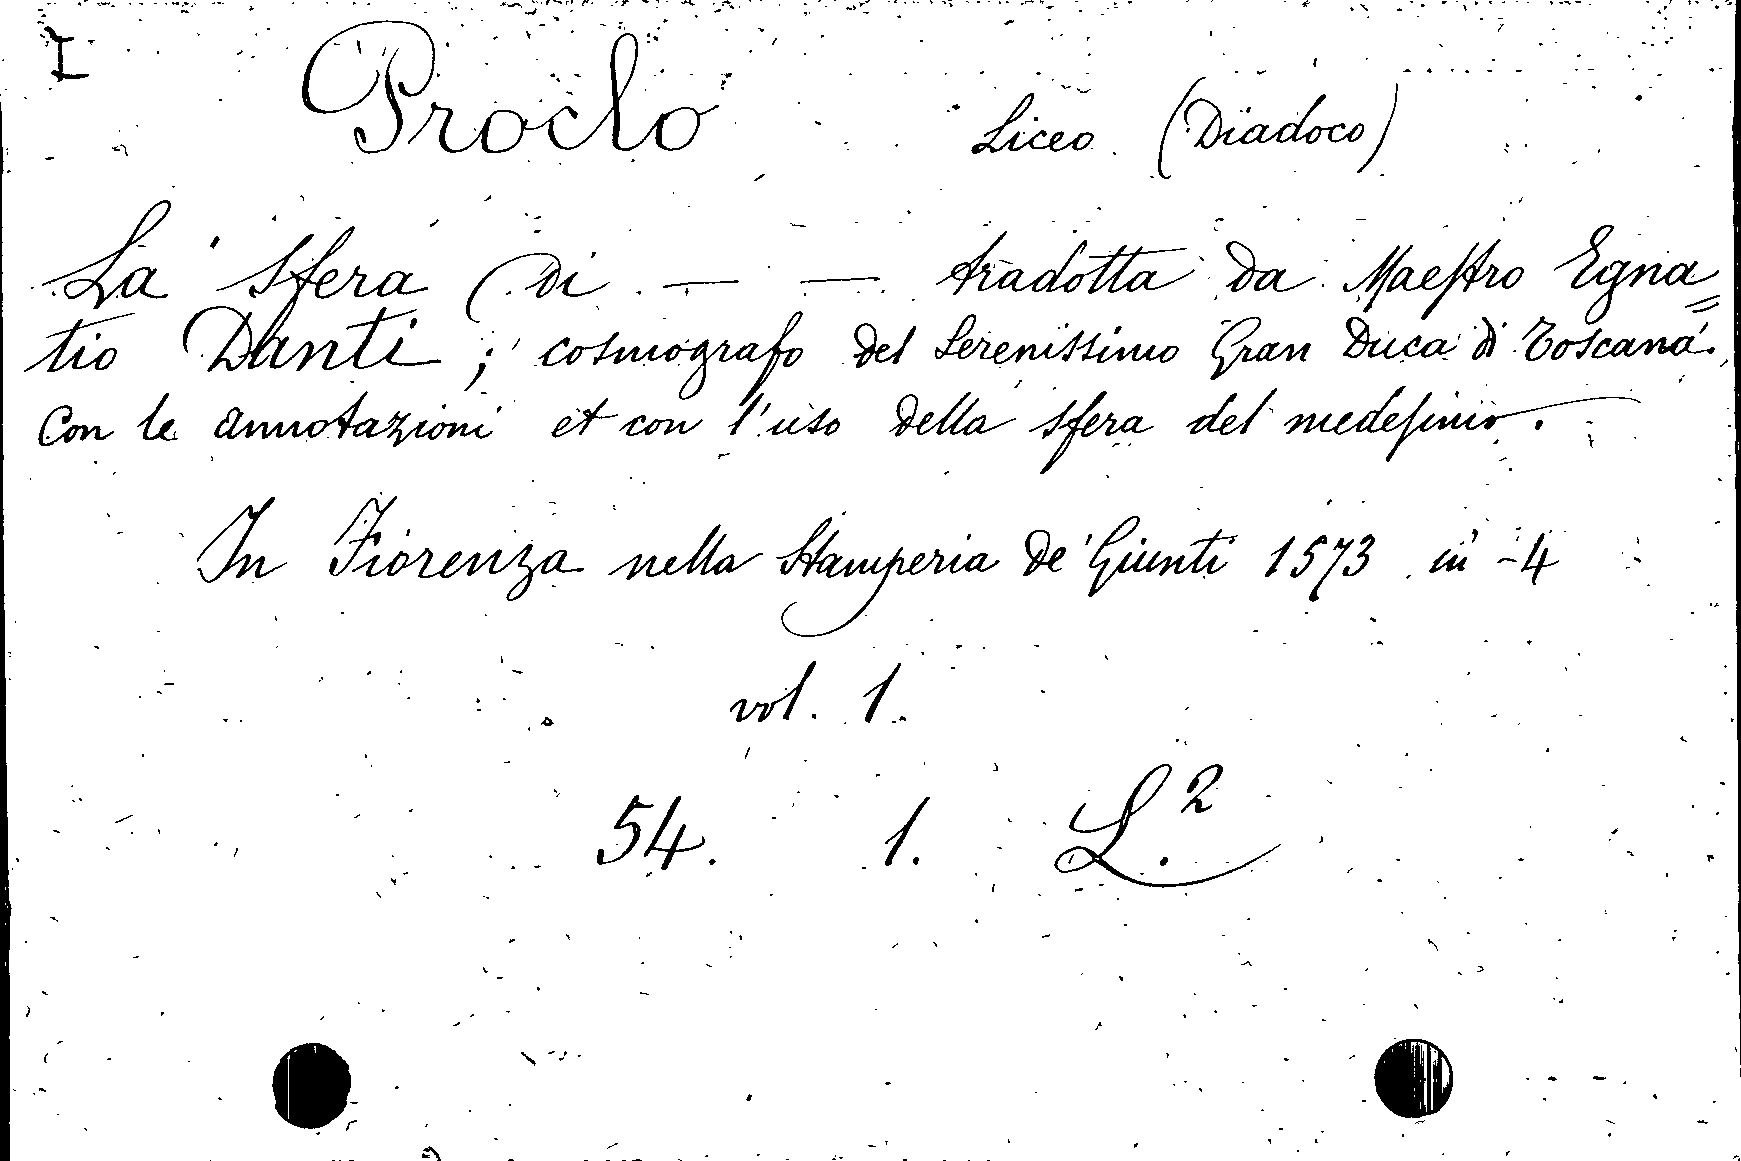 I
Proclo Liceo (Diadoco)
La sfera di — — tradotta da Maestro Egna=
tio Danti; cosmografo del Serenissimo Gran Duca di Toscana.
Con le annotazioni et con l'uso della sfera del medesimo.
In Fiorenza nella Stamperia de' Giunti 1573 in -4
vol. 1.
54. 1. L.²